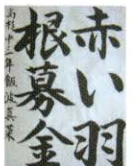 赤い羽
根募金